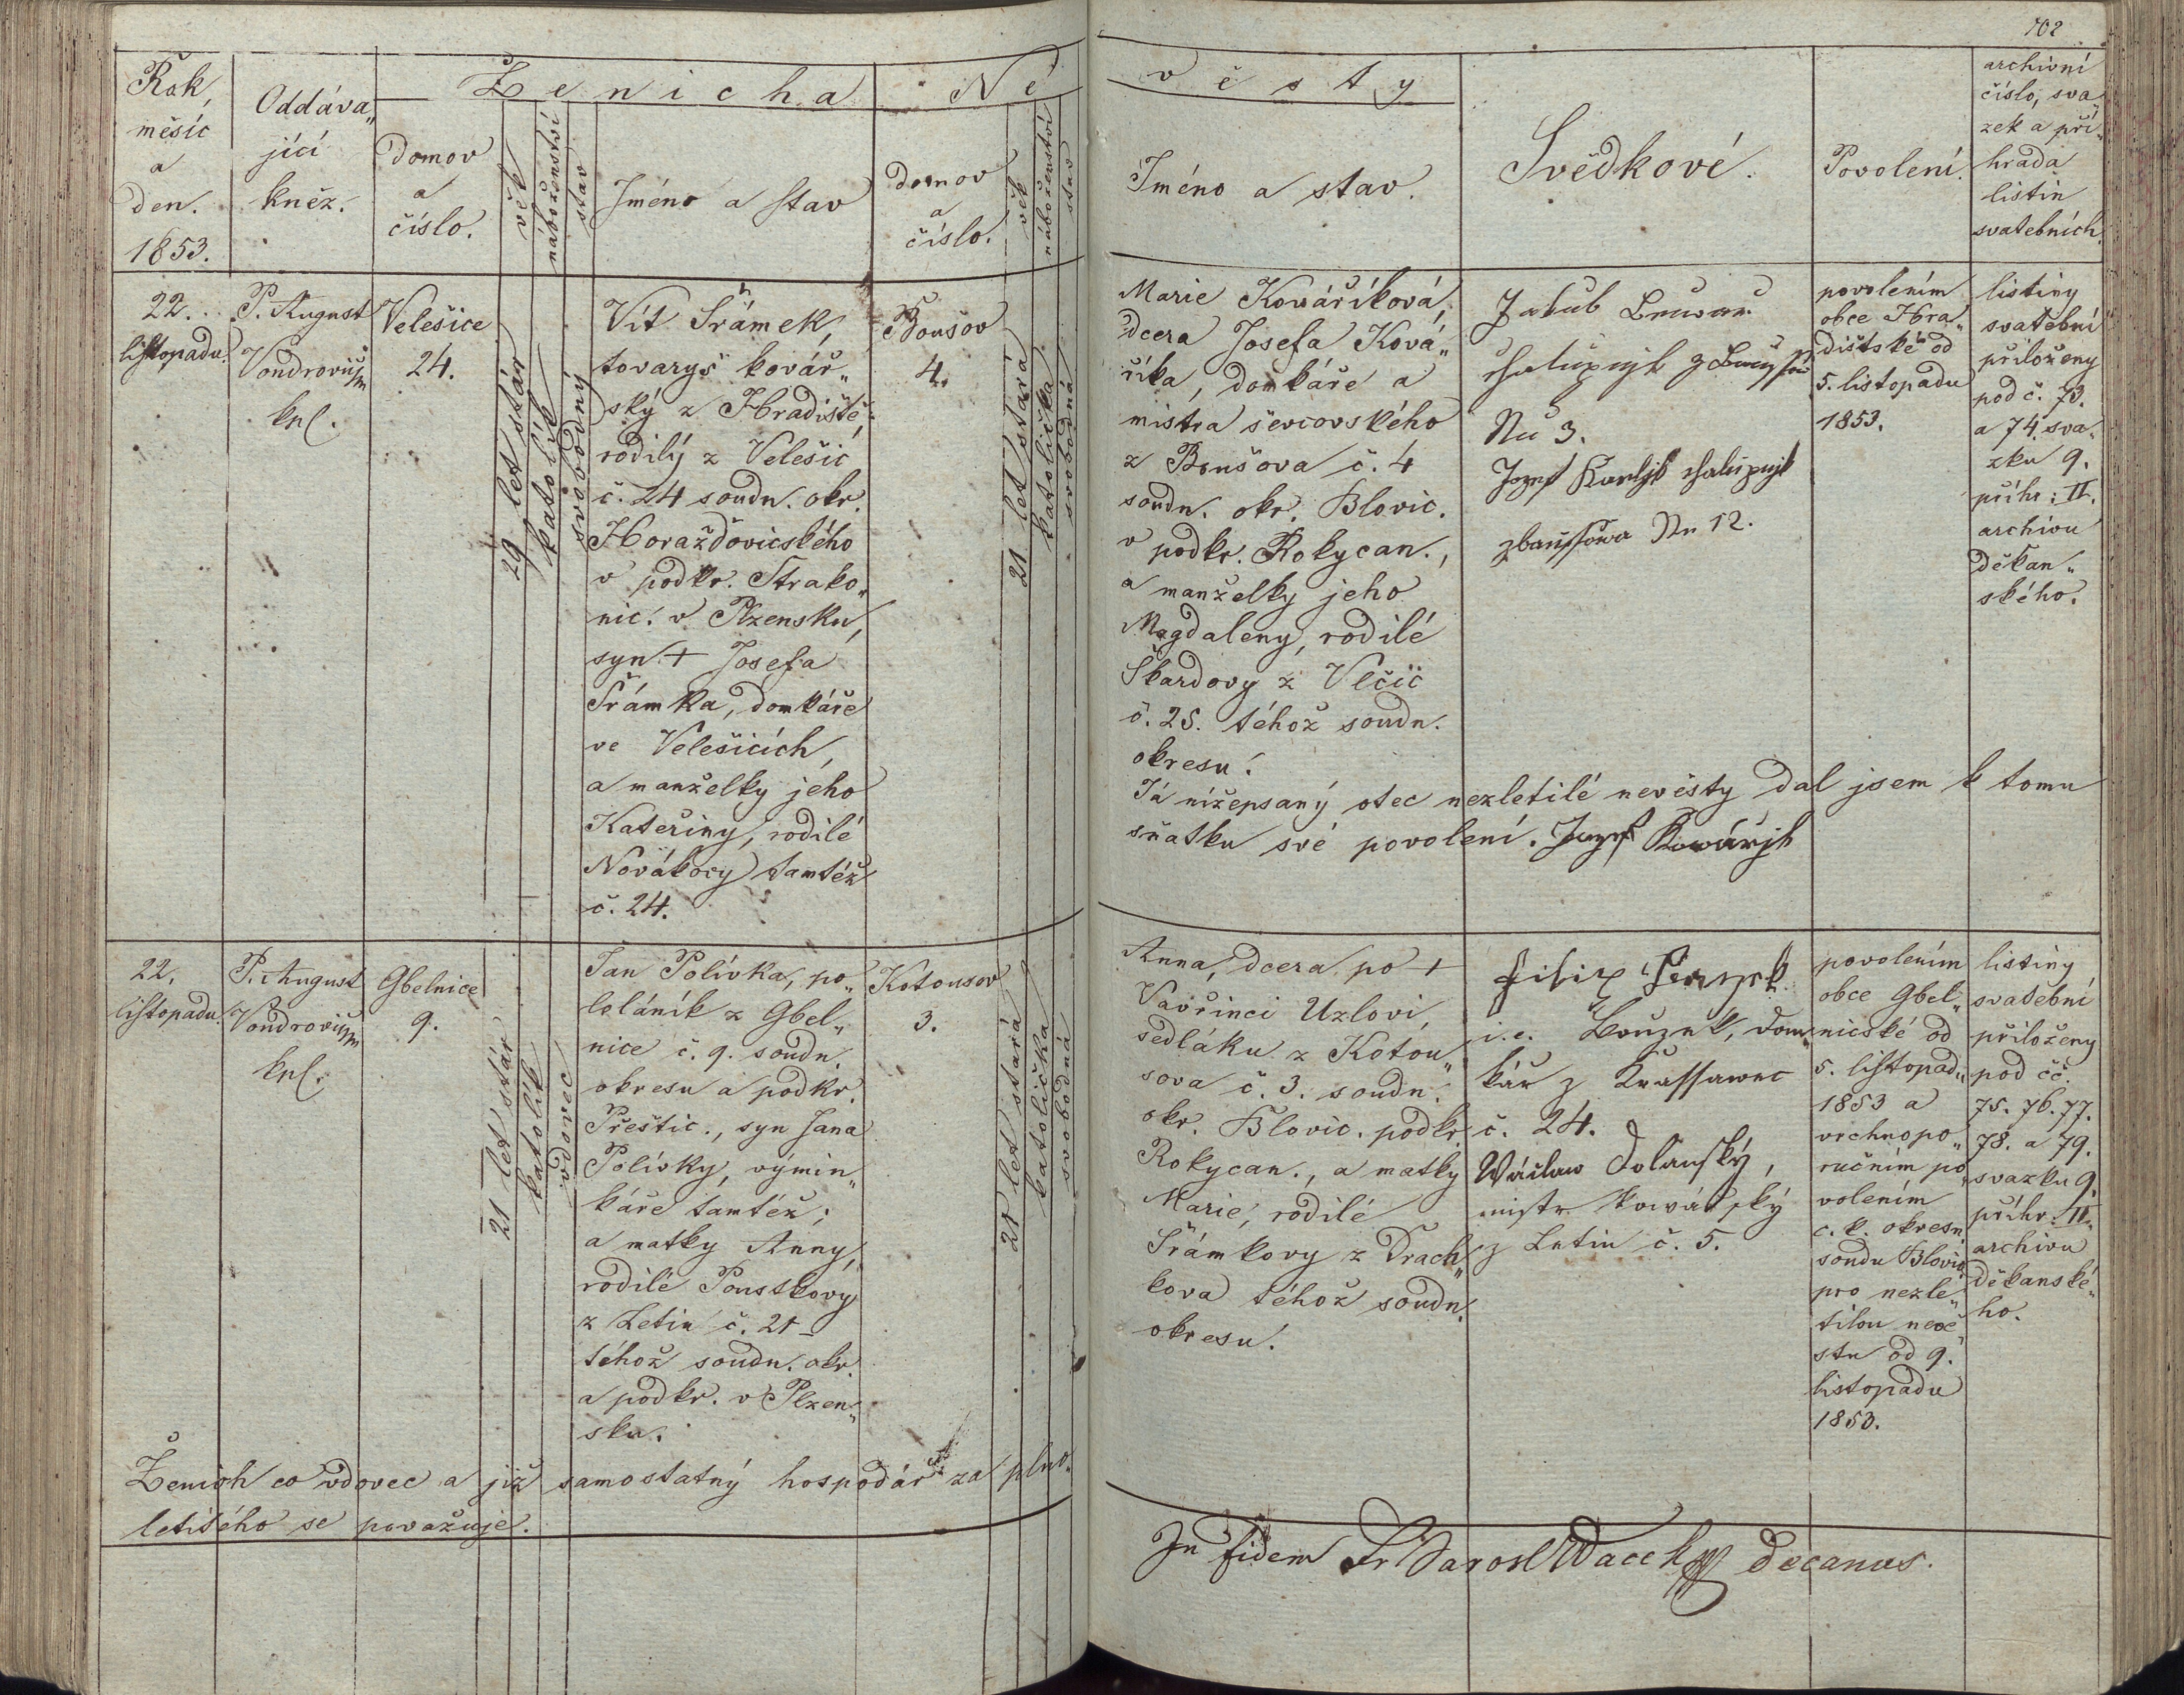 102
Rok,
měsíc
a
den.
1853.
Oddáva„
jící
kněz.
Ženicha
Domov
a
číslo.
věk
náboženství
stav
Jméno a stav
Ně
Domov
a
číslo.
věk
náboženství
stav
věsty
Jméno a stav.
Svědkové.
Povolení.
archivní
číslo, sva„
zek a při„
hrada
listin
svatebních.
22.
listopadu.
P. August
Vondrovič
kpl.
Velešice
24.
29 let stár
katolík
svobodný
Vít Šrámek,
tovaryš kovář„
ský z Hradiště,
rodilý z Velešic
č. 24 soudn. okr.
Horažďovicského
v podkr. Strako„
nic. v Plzensku,
syn + Josefa
Šrámka, domkáře
ve Velešicích,
a manželky jeho
Kateřiny, rodilé
Novákovy tamtéž
č. 24.
Boušov
4.
21 let stará
katolička
svobodná
Marie Kovaříková,
dcera Josefa Ková„
říka, domkáře a
mistra ševcovského
z Boušova č. 4
soudn. okr. Blovic.
v podkr. Rokycan.,
a manželky jeho
Magdaleny, rodilé
Škardovy z Vlčic
č. 25. téhož soudn.
okresu.
Já nížepsaný otec nezletilé nevěsty dal jsem k tomu
sňatku své povolení. Jozef Kowářjk
Jakub
chalupnjk z
Nu 3.
Jozef chalupnjk
zbaussowa Nu 12.
povolením
obce Hra„
dišťské od
5. listopadu
1853.
listiny
svatební
přiloženy
pod č. 73.
a 74. sva„
zku 9.
příhr: II.
archivu
děkan„
ského.
22.
listopadu.
P. August
Vondrovič
kpl.
Gbelnice
9.
21 let stár
katolík
vdovec
Jan Polívka, po„
loláník z Gbel„
nice č. 9. soudn.
okresu a podkr.
Přeštic., syn Jana
Polívky, výmin„
káře tamtéž;
a matky Anny,
rodilé Pouskovy
z Letin č. 21
téhož soudn. okr.
a podkr. v Plzen„
sku.
Kotousov
3.
21 let stará
katolička
svobodná
Anna, dcera po +
Vavřinci Uzlovi,
sedláku z Kotou„
sova č. 3. soudn.
okr. Blovic. podkr.
Rokycan., a matky
Marie, rodilé
Šrámkovy z Drach„
kova téhož soudn.
okresu.
Filip
i. e. Bouzek, dom„
kář z
č. 24.
Wáclaw Dolanský,
mistr kowářský
z Letin č. 5.
povolením
obce Gbel„
nicské od
5. listopad„
1853 a
vrchnopo„
ručním po„
volením
c. k. okresn.
soudu Blovic.
pro nezle„
tilou nevě„
stu od 9.
listopadu
1853.
listiny
svatební
přiloženy
pod čč.
75. 76. 77.
78. a 79.
svazku 9.
příhr. II.
archivu
děkanské„
ho.
Ženich co vdovec a již samostatný hospodář za plno„
letitého se považuje.
In fidem Fr Jarosl Wacek decanus.